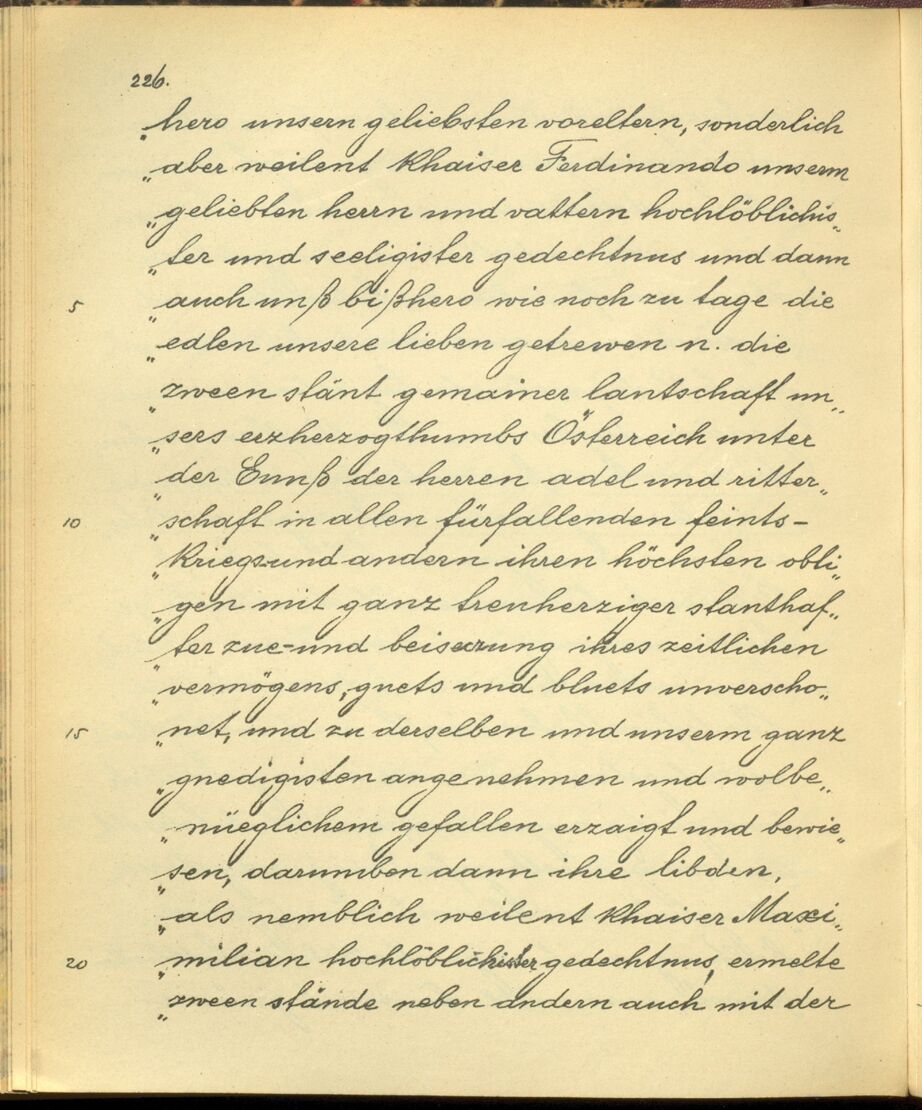 226.
„hero unsern geliebsten voreltern, sonderlich
„aber weilent Khaiser Ferdinando unserm
„geliebten herrn und vattern hochlöblichis„
„ter und seeligister gedechtnus und dann
5 „auch unß bißhero wie noch zu tage die
„edlen unsere lieben getrewen n. die
„zween stänt gemainer lantschaft un„
„sers erzherzogthumbs Österreich unter
„der Ennß der herren adel und ritter„
10 „schaft in allen fürfallenden feints-
„Kriegs-und andern ihren höchsten obli„
„gen mit ganz treuherziger stanthaf„
„ter zue-und beisezung ihres zeitlichen
„vermögens, guets und bluets unverscho„
15 „net, und zu derselben und unserm ganz
„gnedigisten angenehmen und wolbe„
„nüeglichem gefallen erzaigt und bewie„
„sen, darumben dann ihre libden,
„als nemblich weilent Khaiser Maxi„
20 „milian hochlöblichister gedechtnus, ermelte
„zween stände neben andern auch mit der